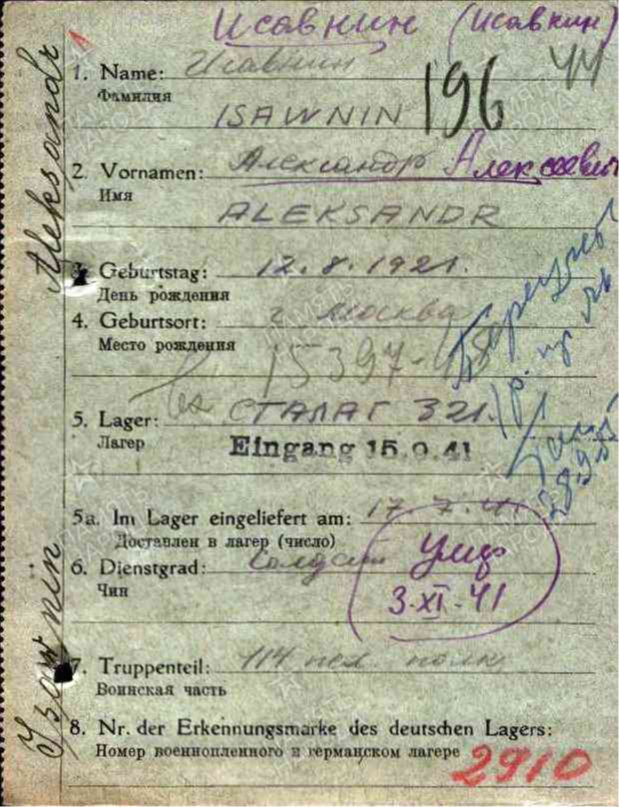 Исавнин (Исавкин)
1. Name: Исавнин
Фамилия
ISAWNIN
196
44
2. Vornamen: Александр Алексеевич
Имя
ALEKSANDR
3. Geburtstag: 12.8.1921.
День рождения
4. Geburtsort: г Москва
Место рождения
15397-48
5. Lager: СТАЛАГ 321.
Лагер
Eingang 15.9.41
5a. Im Lager eingeliefert am: 17.7.41.
Доставлен в лагер (число)
6. Dienstgrad: Солдат
Чин
Умер
3.XI-41
7. Truppenteil: 114 пех. полк
Воинская часть
8. Nr. der Erkennungsmarke des deutschen Lagers:
Номер военнопленного в германском лагере
2910
Aleksandr